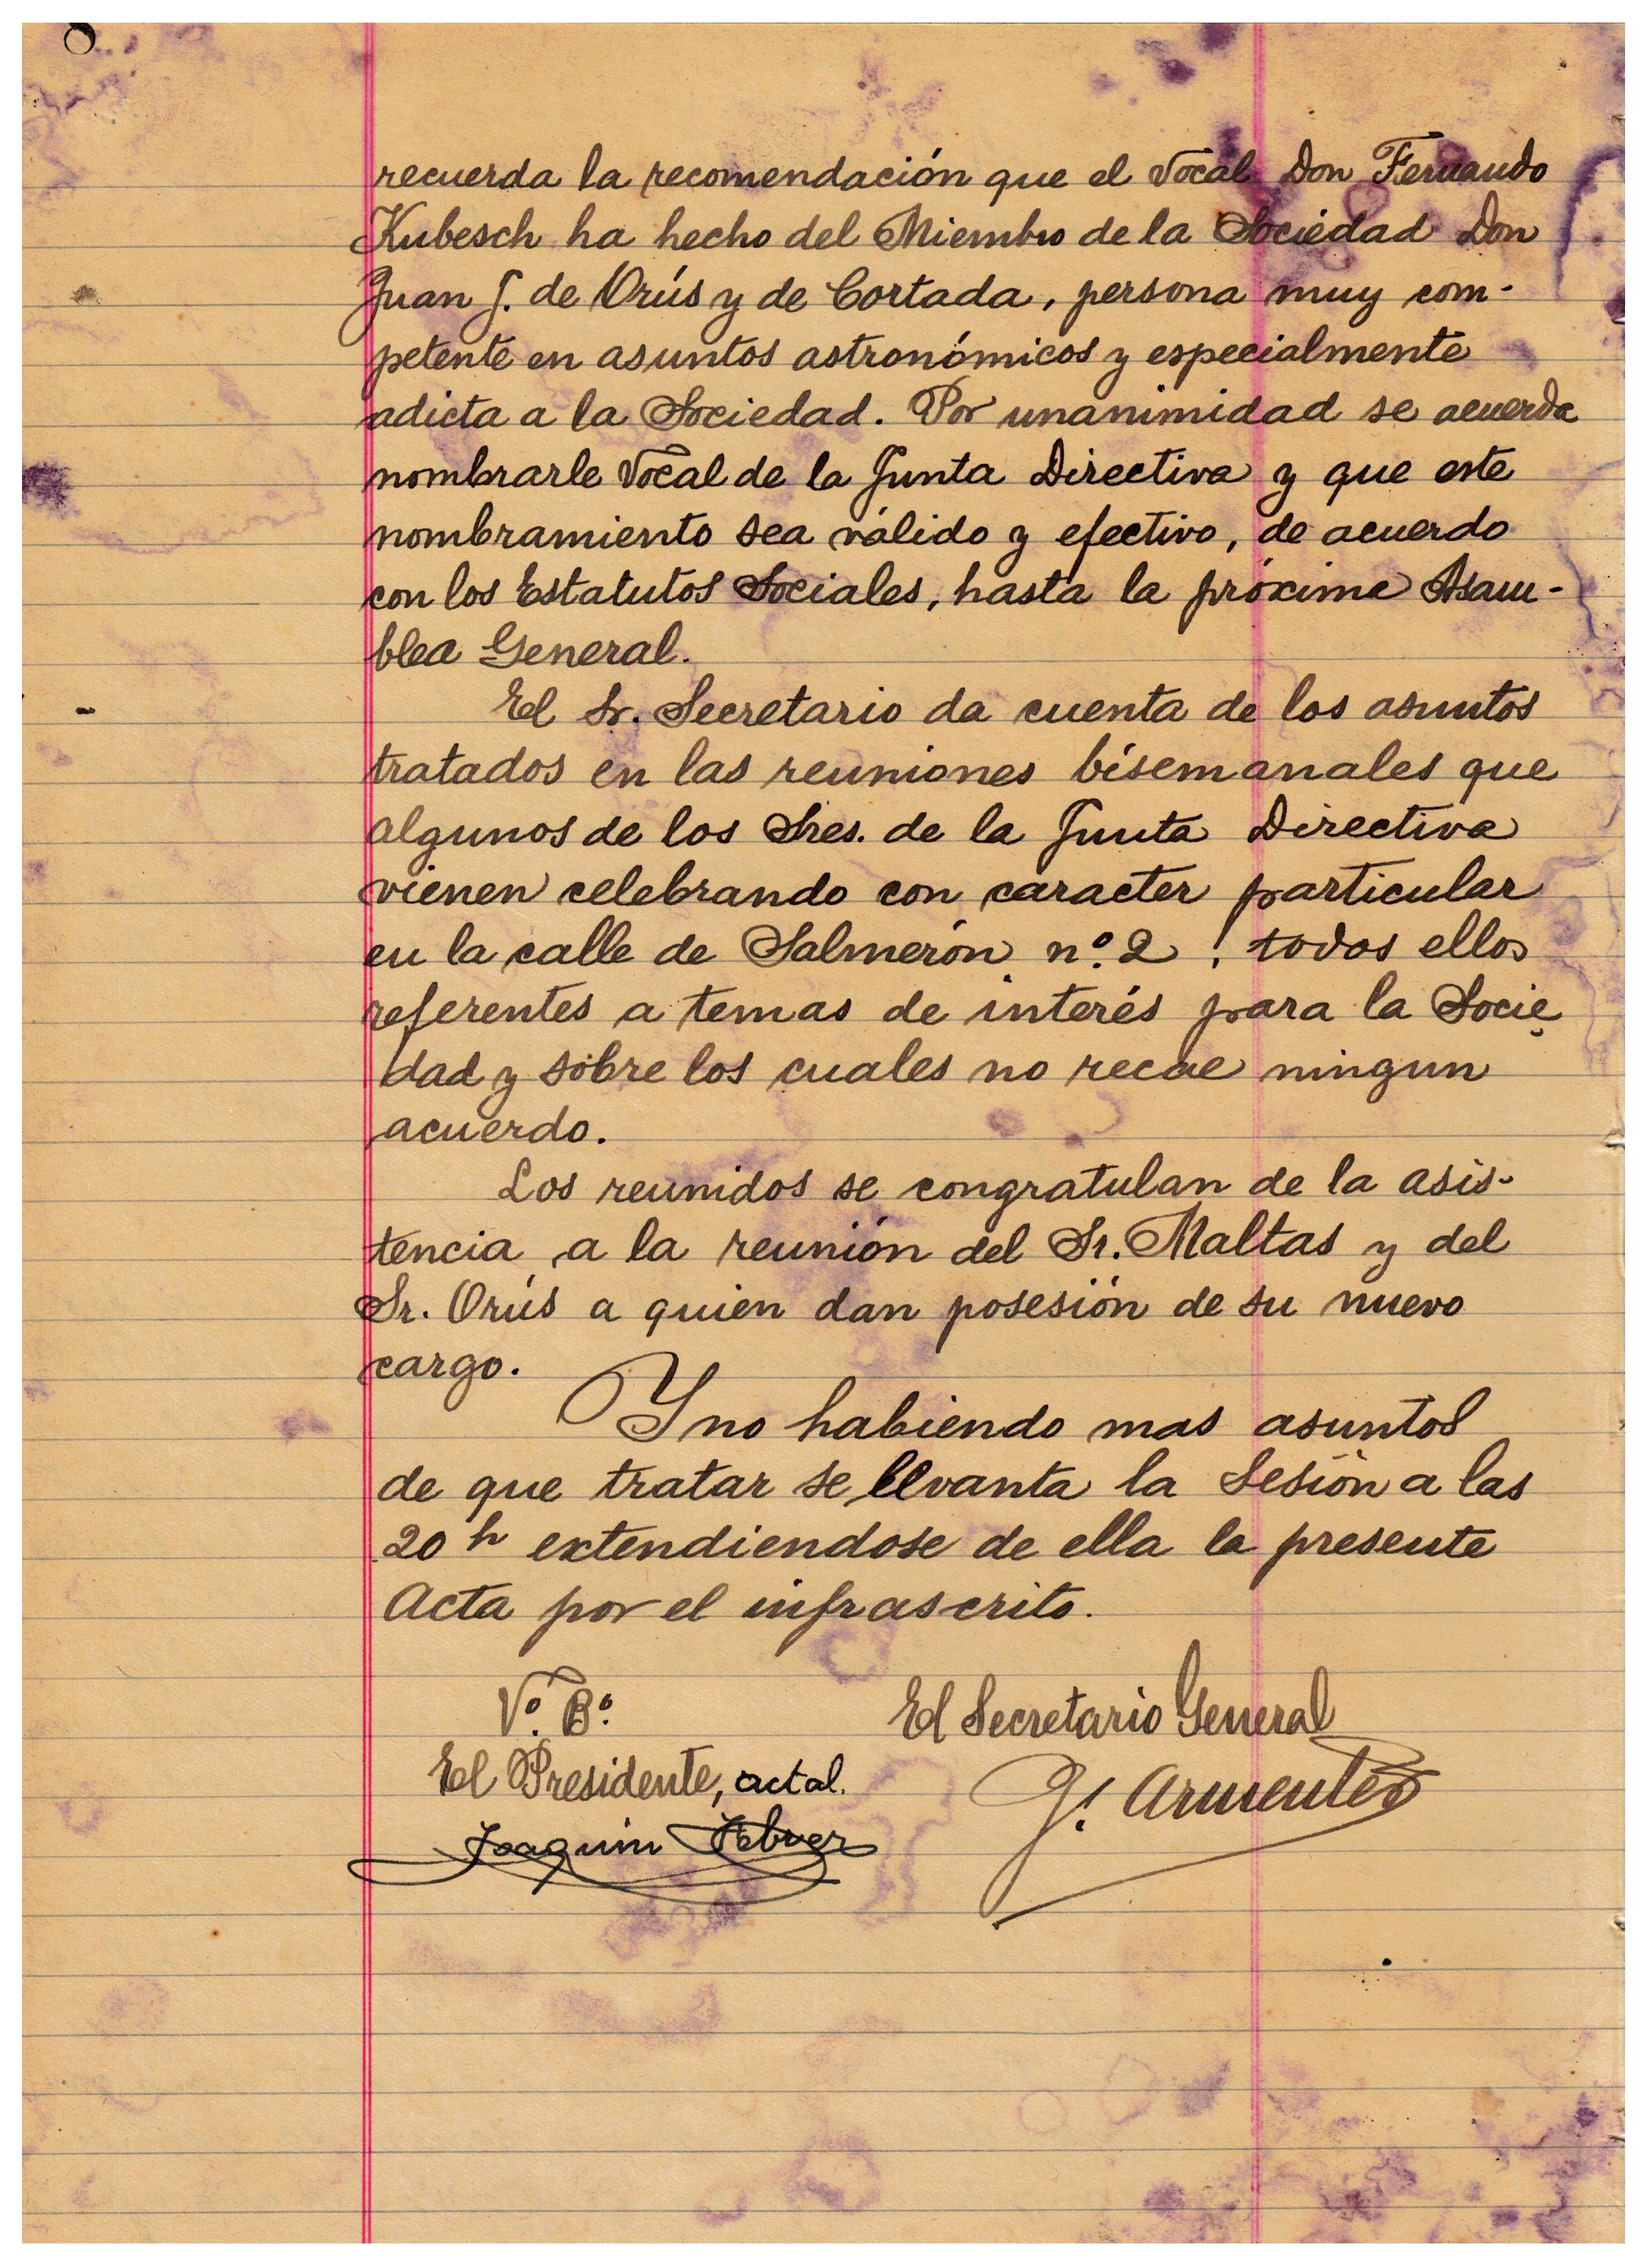 recuerda la recomendación que el Vocal Don Fernando
Kubesch ha hecho del Miembro de la Sociedad Don
Juan J. de Orús y de Cortada, persona muy com-
petente en asuntos astronómicos y especialmente
adicta a la Sociedad. Por unanimidad se acuerda
nombrarle Vocal de la Junta Directiva y que este
nombramiento sea válido y efectivo, de acuerdo
con los Estatutos Sociales, hasta la próxima Asam-
blea General.
El Sr. Secretario da cuenta de los asuntos
tratados en las reuniones bisemanales que
algunos de los Sres. de la Junta Directiva
vienen celebrando con caracter particular
en la calle de Salmerón nº. 2, todos ellos
referentes a temas de interés para la Socie
dad y sobre los cuales no recae ningun
acuerdo.
Los reunidos se congratulan de la asis-
tencia a la reunión del Sr. Maltas y del
Sr. Orús a quien dan posesión de su nuevo
cargo.
Y no habiendo mas asuntos
de que tratar se levanta la Sesión a las
20 h extendiendose de ella la presente
Acta por el infrascrito.
Vº. Bº. El Secretario General
El Presidente, actal. J. Armenter
Joaquin Febrer